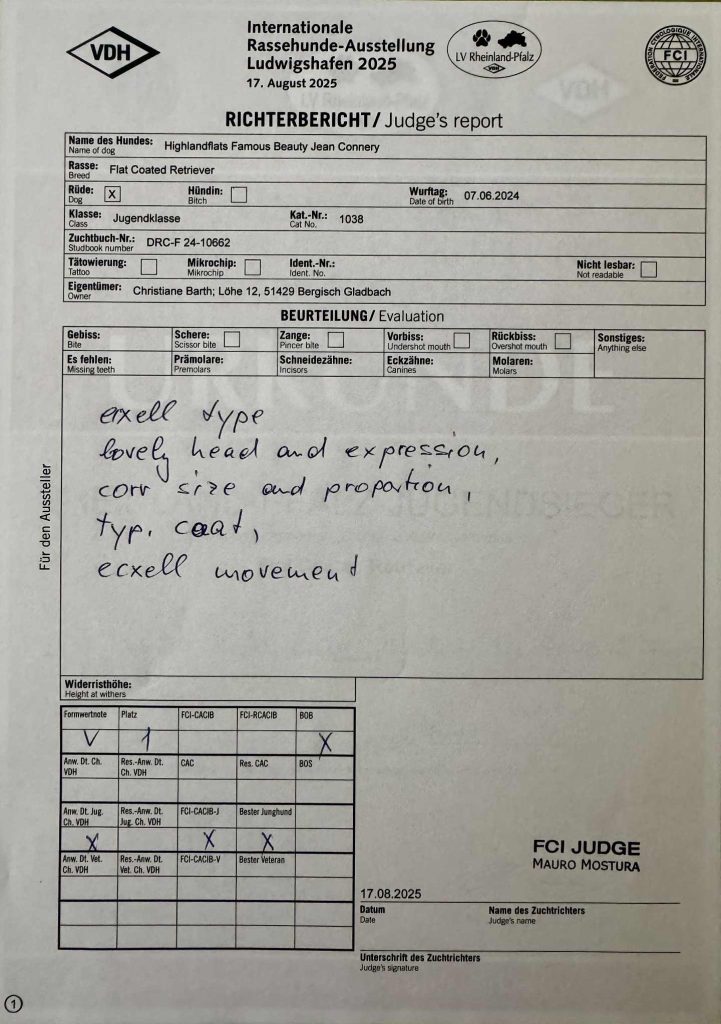 VDH
Internationale
Rassehunde-Ausstellung
Ludwigshafen 2025
17. August 2025
LV Rheinland-Pfalz
VDH
FEDERATION CYNOLOGIQUE INTERNATIONALE
FCI
RICHTERBERICHT/ Judge's report
Name des Hundes: Highlandflats Famous Beauty Jean Connery
Name of dog
Rasse: Flat Coated Retriever
Breed
Rüde: X Hündin: Wurftag: 07.06.2024
Dog Bitch Date of birth
Klasse: Jugendklasse Kat.-Nr.: 1038
Class Cat No.
Zuchtbuch-Nr.: DRC-F 24-10662
Studbook number
Tätowierung: Mikrochip: Ident.-Nr.: Nicht lesbar:
Tattoo Mikrochip Ident. No. Not readable
Eigentümer: Christiane Barth; Löhe 12, 51429 Bergisch Gladbach
Owner
BEURTEILUNG/ Evaluation
Gebiss: Schere: Zange: Vorbiss: Rückbiss: Sonstiges:
Bite Scissor bite Pincer bite Undershot mouth Overshot mouth Anything else
Es fehlen: Prämolare: Schneidezähne: Eckzähne: Molaren:
Missing teeth Premolars Incisors Canines Molars
Für den Aussteller
exell type
lovely head and expression,
corr size and proportion,
typ. coat,
ecxell movement
Widerristhöhe:
Height at withers
Formwertnote Platz FCI-CACIB FCI-RCACIB BOB
V 1 X
Anw. Dt. Ch. VDH Res.-Anw. Dt. Ch. VDH CAC Res. CAC BOS
Anw. Dt. Jug. Ch. VDH Res.-Anw. Dt. Jug. Ch. VDH FCI-CACIB-J Bester Junghund
X X X
Anw. Dt. Vet. Ch. VDH Res.-Anw. Dt. Vet. Ch. VDH FCI-CACIB-V Bester Veteran
FCI JUDGE
MAURO MOSTURA
17.08.2025
Datum Name des Zuchtrichters
Date Judge's name
Unterschrift des Zuchtrichters
Judge's signature
1